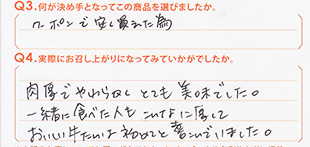 Q3.何が決め手となってこの商品を選びましたか。
クーポンで安く買えた為
Q4.実際にお召し上がりになってみていかがでしたか。
肉厚でやわらかく とても美味でした。
一緒に食べた人も こんなに厚くて
おいしい牛たんは初めてと喜んでいました。